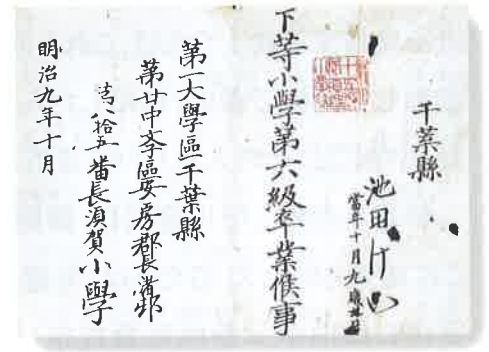 千葉縣
池田
當年十月九歳
下等小學第六級卒業候事
第一大學區千葉縣
第廿中學區安房郡長須賀邨
八拾五番長須賀小學
明治九年十月